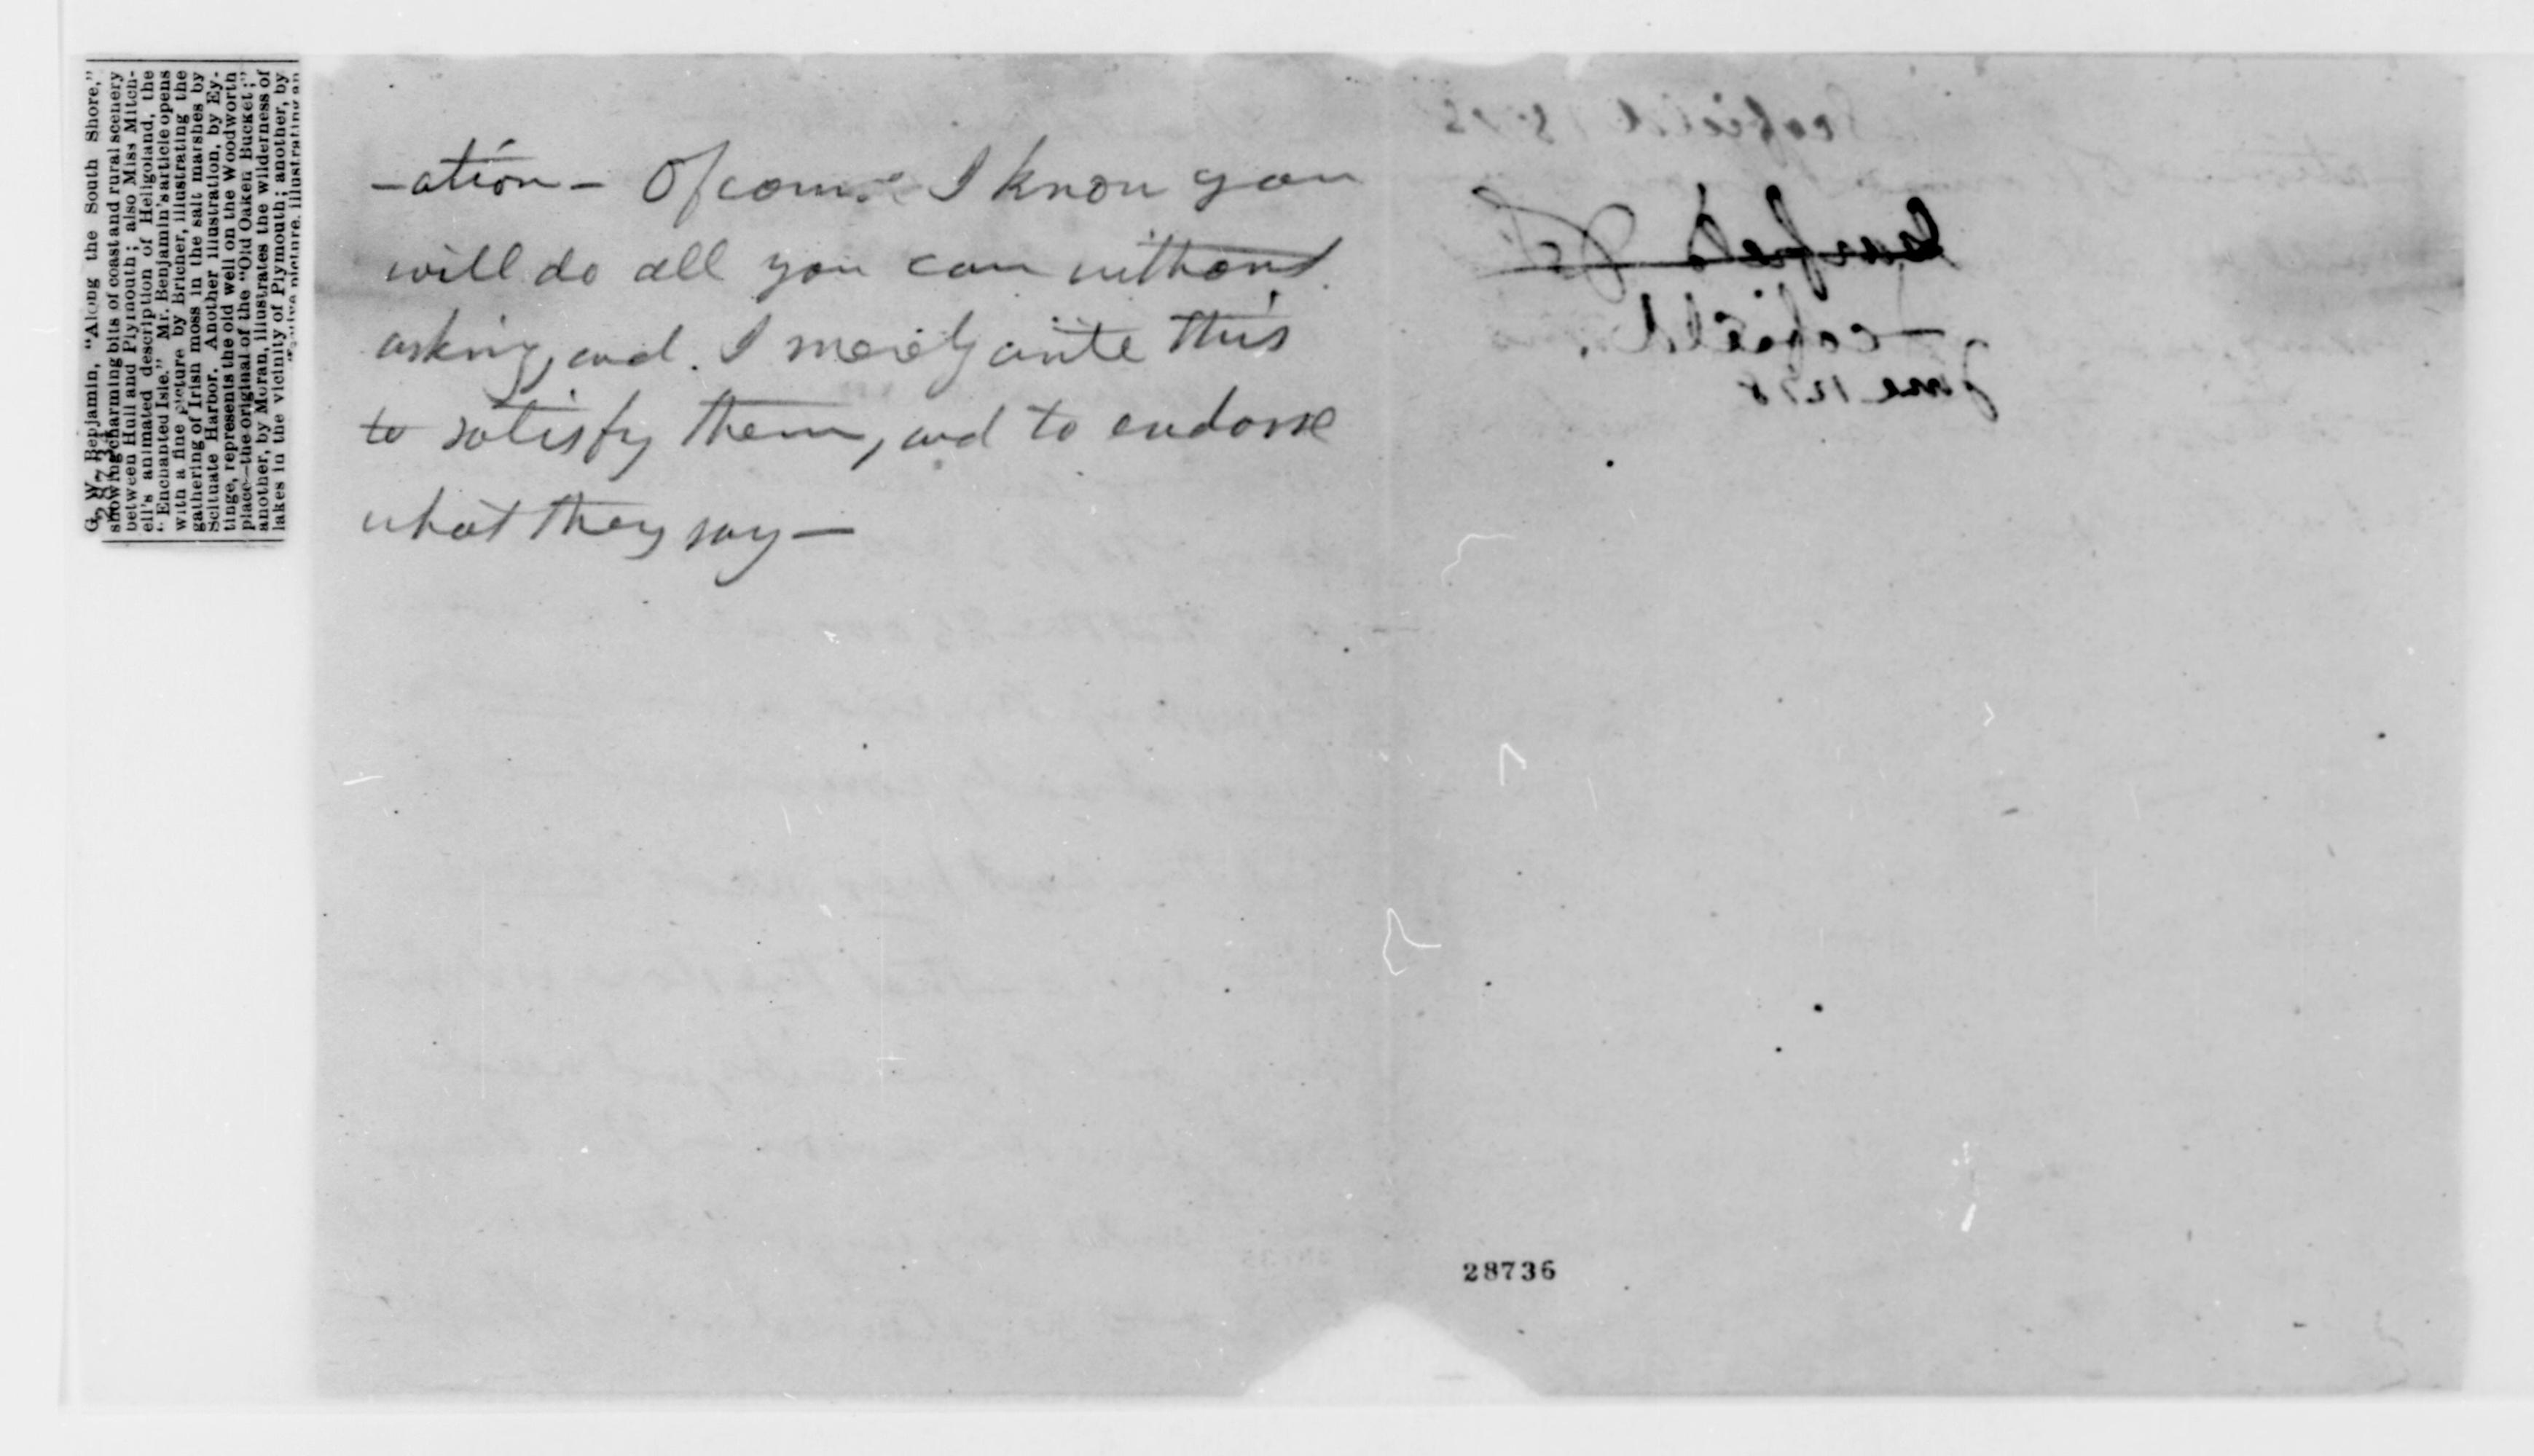 G. W. Benjamin, "Along the South Shore,"
showing charming bits of coast and rural scenery
between Hull and Plymouth; also Miss Mitch-
ell's animated description of Heligoland, the
"Enchanted Isle." Mr. Benjamin's article opens
with a fine picture by Bricher, illustrating the
gathering of Irish moss in the salt marshes by
Scituate Harbor. Another illustration, by Ey-
tinge, represents the old well on the Woodworth
place—the original of the "Old Oaken Bucket;"
another, by Moran, illustrates the wilderness of
lakes in the vicinity of Plymouth; another, by
picture, illustrating an
-ation - Of course I know you
will do all you can without
asking, and. I merely write this
to satisfy them, and to endorse
what they say —
Scofield
June 1878
28736